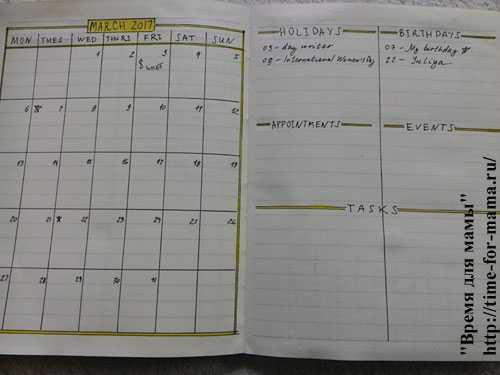 MARCH 2017
MON TUES WED THURS FRI SAT SUN
1 2 3 4 5
6 7 8 9 10 11 12
13 14 15 16 17 18 19
20 21 22 23 24 25 26
27 28 29 30 31
HOLIDAYS
03 - day writer
08 - International Women's Day
BIRTHDAYS
07 - My birthday
22 - Juliya
APPOINTMENTS
EVENTS
TASKS
"Время для мамы"
http://time-for-mama.ru/